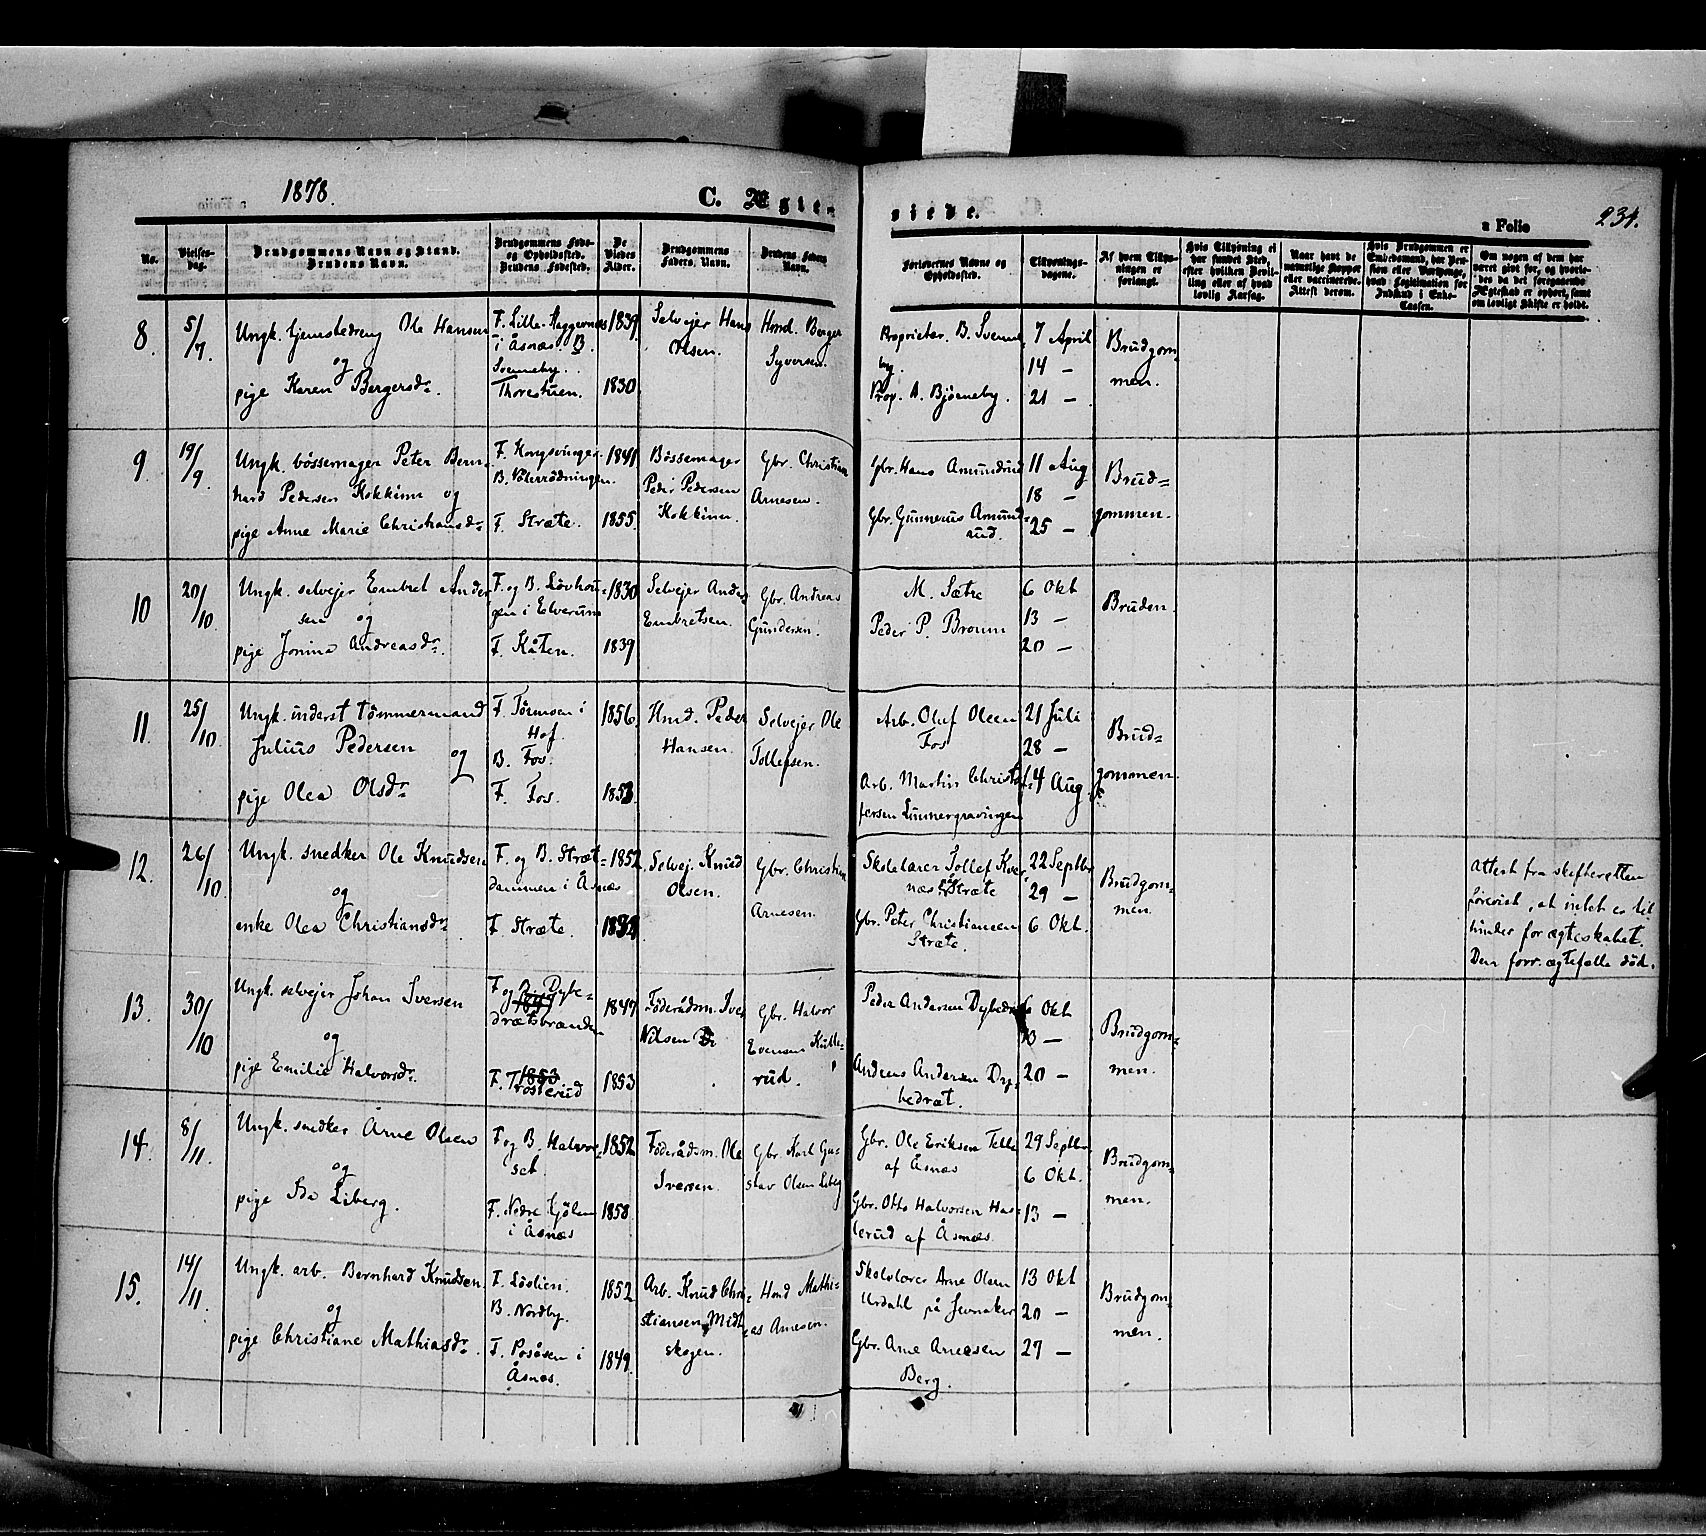 1878.
C. Ægte-
viede.
a Folio
234.
No.
Vielses-
dag.
Brudgommens Navn og Stand.
Brudens Navn.
Brudgommens Føde-
og Opholdssted.
Brudens Fødested.
De
Viedes
Alder.
Brudgommens
Faders Navn.
Brudens Faders
Navn.
Forlovernes Navne og
Opholdssted.
Tillysnings-
dagene.
Af hvem Tillys-
ningen er
forlangt.
Hvis Tillysning ei
har fundet Sted,
efter hvilken Bevil-
ling eller af hvad
lovlig Aarsag.
Naar havt de
naturlige Kopper
eller vaccinerede.
Attest derom.
Hvis Brudgommen er
Embedsmand, har Pen-
sion eller Vartpenge,
hvad Legitimation for
Indskud i Enke-
Cassen.
Om nogen af dem har
været gift før, og hvorle-
des da det foregaaende
Ægteskab er ophørt, samt
om lovligt Skifte er holdt.
8.
5/7
Ungk. tjenestedreng Ole Hansen
og
pige Karen Bergersd.
F. Lille-Haggernæs
i Åsnæs. B.
Svenneby.
Thorestuen.
1839.
1830
Selvejer Hans
Olsen.
Hmd. Berger
Syversen.
Proprietær. B. Svenne
by.
Prop. A. Bjørneby.
7 April
14 -
21 -
Brudgom-
men.
9.
19/9.
Ungk. bössemager Peter Bern-
hard Pedersen Kokkinn og
pige Anne Marie Christiansd.
F. Kongsvinger
B. Nølerrödningen.
F. Stræte.
1841
1855.
Bössemager
Peder Pedersen
Kokkinn.
Gbr. Christian
Arnesen.
Gbr. Hans Amundrud
Gbr. Gunnerus Amund-
rud.
11 Aug
18 -
25 -
Brud-
gommen.
10
20/10.
Ungk. selvejer Embret Ander
sen og
pige Jonina Andreasd.
F. og B. Lövhou-
gen i Elverum
F. Kåten.
1830
1839
Selvejer Anders
Embretsen.
Gbr. Andreas
Gundersen.
M. Sætre
Peder P. Broum
6 Okt
13 -
20 -
Bruden.
11.
25/10
Ungk. inderst tömmermand
Julius Pedersen og
pige Olea Olsd.
F. Törmoen i
Hof.
B. Fos.
F. Fos.
1856.
1853.
Hmd. Peder
Hansen.
Selvejer Ole
Tollefsen.
Arb. Oluf Olsen
Fos
Arb. Martin Christof-
fersen Linnergravingen
21 Juli
28 -
4 Aug.
Brud-
gommen.
12.
26/10
Ungk. snedker Ole Knudsen
og
enke Olea Christiansd.
F. og B. Stræt-
dammen i Åsnæs
F. Stræte.
1852.
Selvej. Knud
Olsen.
Gbr. Christian
Arnesen.
Skolelærer Tollef Kver
næs Stræte
Gbr. Peter Christiansen
Stræte.
22 Septbr
29 -
6 Okt.
Brudgom-
men.
Attest fra skifteretten
forevist, at intet er til
hinder for ægteskabet.
Den forr. ægtefælle död.
13.
30/10
Ungk. selvejer Johan Iversen
og
pige Emilie Halvorsd.
F. og B. Dybe-
drætsbranden
F. Trosterud
1847
1853
Föderådsm. Iver
Nilsen
Gbr. Halvor
Evensen Kulle-
rud.
Peder Andersen Dybedræt
Andreas Andersen Dy-
bedræt.
6 Okt
13 -
20 -
Brudgom-
men.
14.
8/11.
Ungk. snedker Arne Olsen
og
pige Ida Liberg.
F. og B. Halvor-
set.
F. Nedre Kjölen
i Åsnæs
1852
1858.
Föderådsm. Ole
Iversen.
Gbr. Karl Gu-
stav Olsen Liberg
Gbr. Ole Eriksen Telle
af Åsnæs
Gbr. Otto Halvorsen Has-
lerud af Åsnæs.
29 Septbr
6 Okt.
13 -
Brudgom-
men.
15.
14/11.
Ungk. arb. Bernhard Knudsen
og
pige Christiane Mathiasd.
F. Löslien.
B. Nordby.
F. Posåsen i
Åsnæs.
1852
1849.
Arb. Knud Chri-
stiansen Midt-
skogen.
Hmd Mathi-
as Arnesen.
Skolelærer Arne Olsen
Urdahl på Jevnaker
Gbr. Arne Arnesen
Berg.
13 Okt
20 -
27 -
Brudgom-
men.